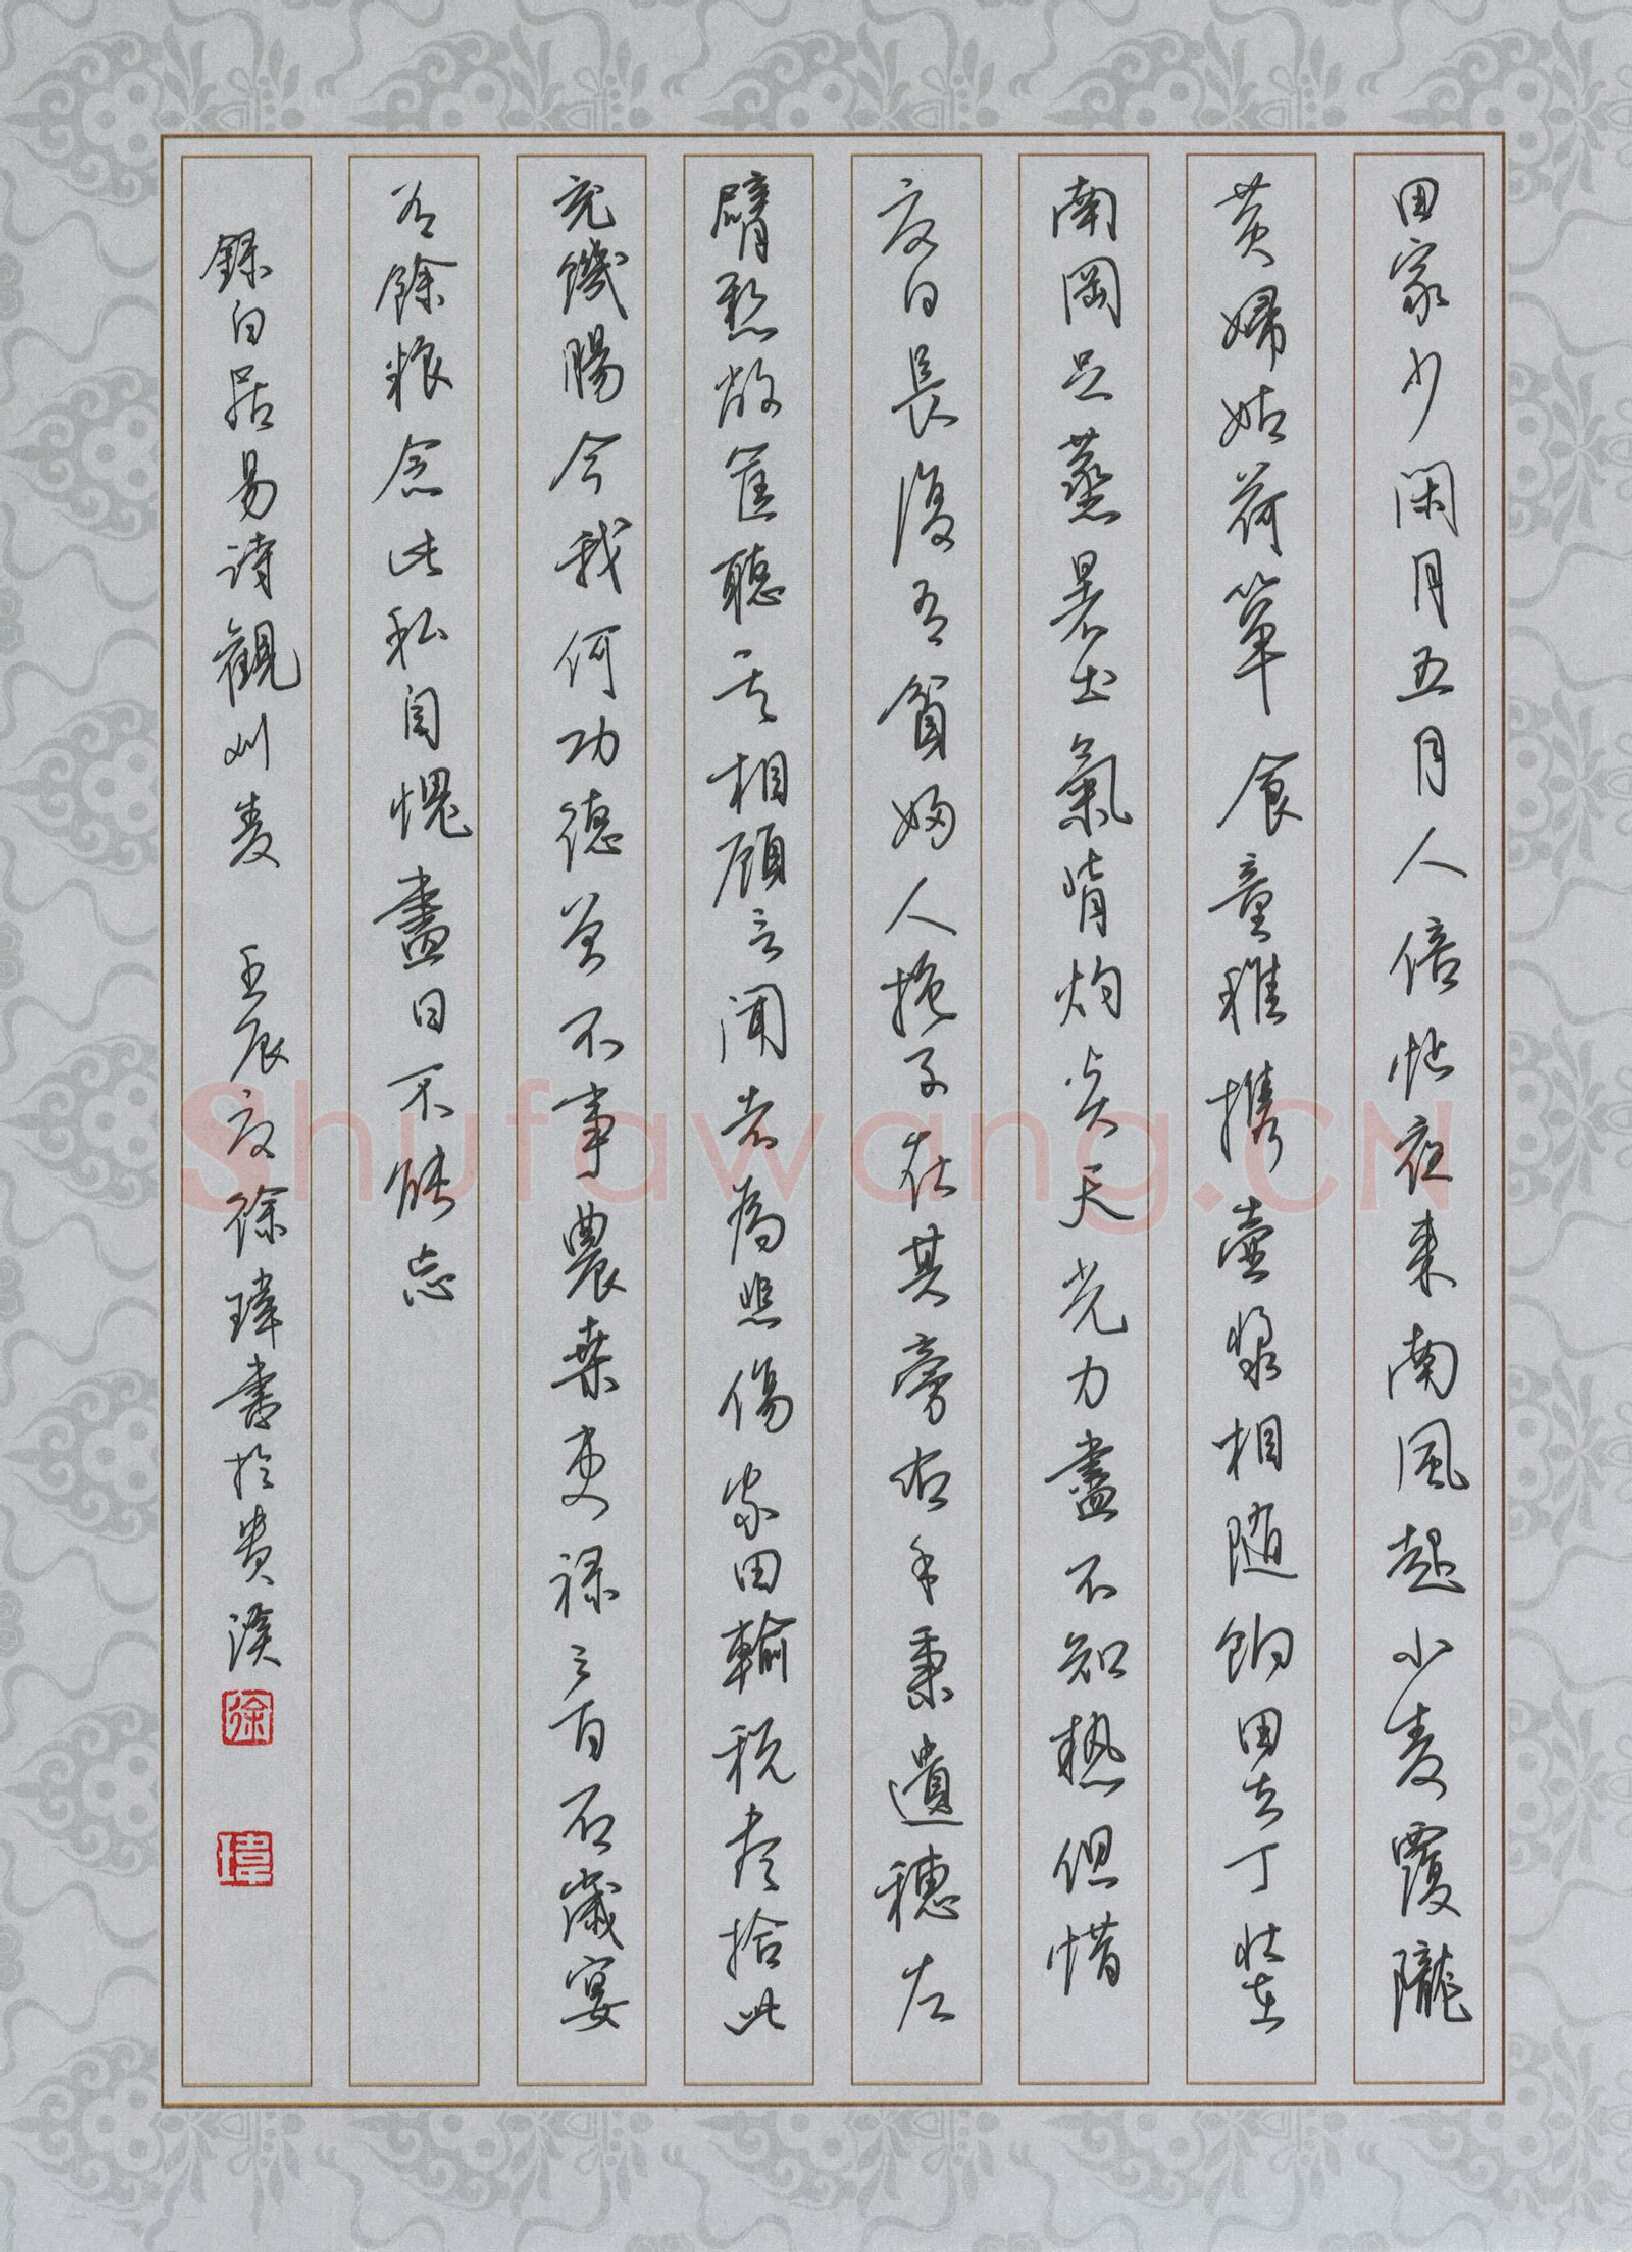 田家少閑月五月人倍忙夜来南風起小麦覆隴
黄婦姑荷簞食童稚携壺漿相随餉田去丁壮在
南岡足蒸暑土氣背灼炎天光力盡不知熱但惜
夏日長復有貧婦人抱子在其旁右手秉遺穗左
臂懸敝筐聽其相顧言聞者為悲傷家田輸税盡拾此
充饑腸今我何功德曾不事農桑吏禄三百石歲宴
有餘粮念此私自愧盡日不能忘
錄白居易詩觀刈麦 壬辰夏徐瑋書於貴溪
徐
瑋
Shufawang.CN